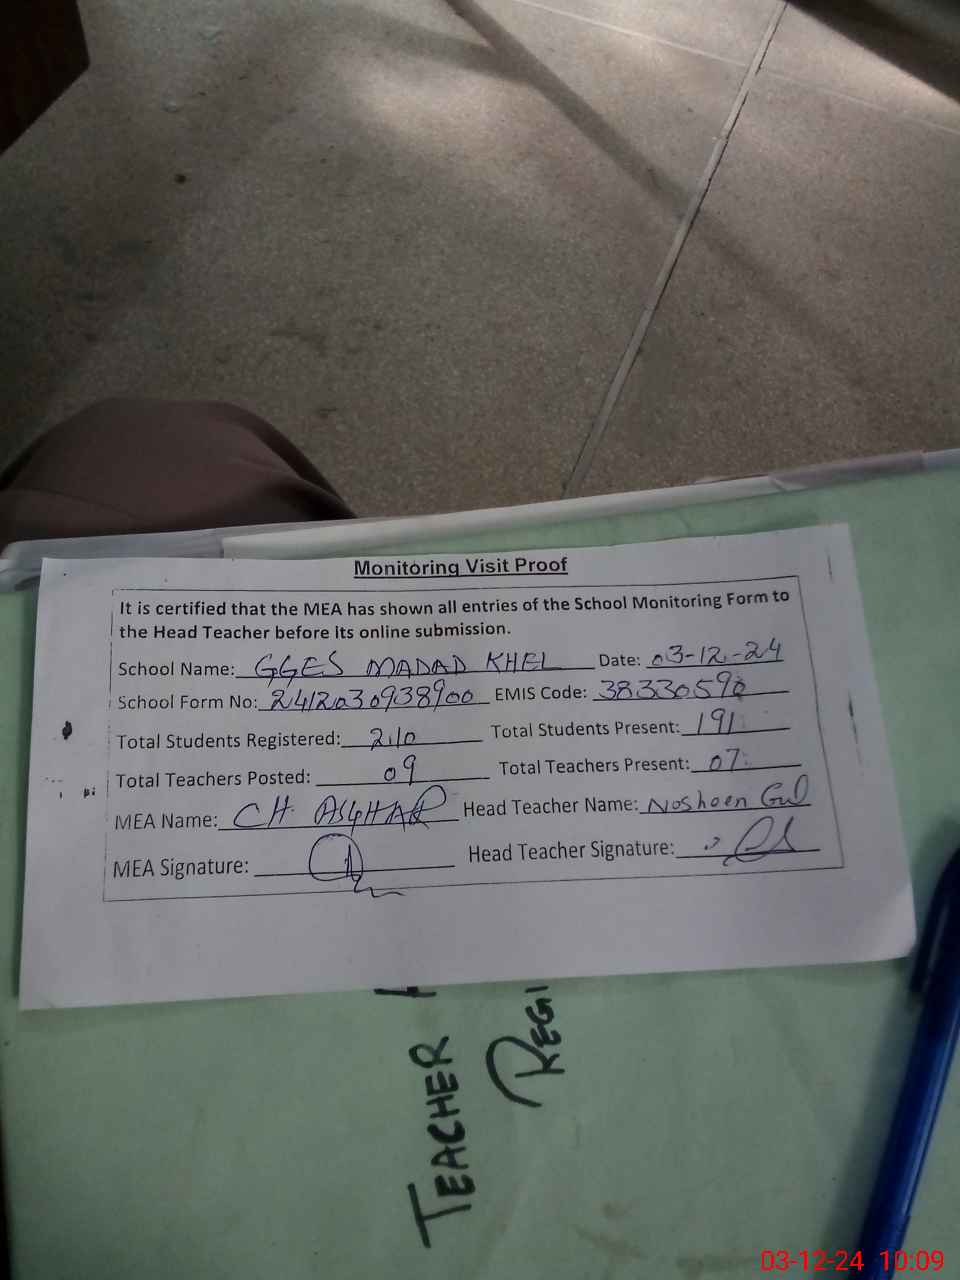 Monitoring Visit Proof
It is certified that the MEA has shown all entries of the School Monitoring Form to
the Head Teacher before its online submission.
School Name: GGES MADAD KHEL Date: 03-12-24
School Form No: 2412030938900 EMIS Code: 38330590
Total Students Registered: 210 Total Students Present: 191
Total Teachers Posted: 09 Total Teachers Present: 07
MEA Name: CH. ASGHAR Head Teacher Name: Nosheen Gul
MEA Signature: Head Teacher Signature:
TEACHER
REGI
03-12-24 10:09